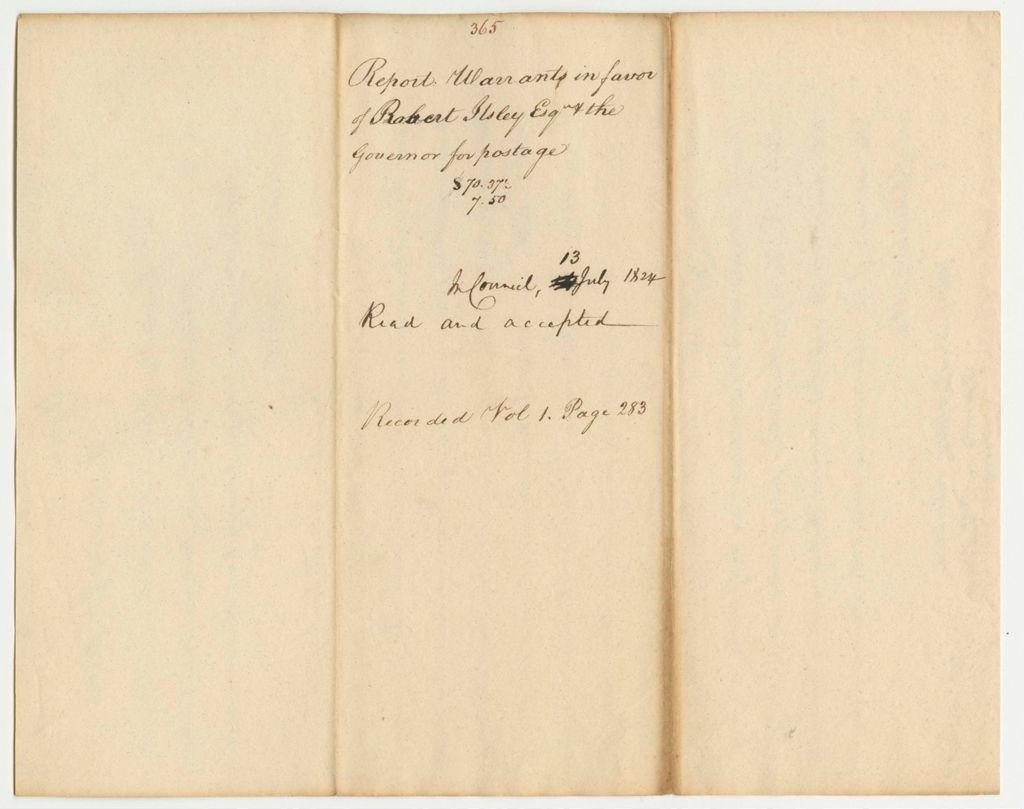 365
Report Warrants in favor
of Robert Ilsley Esqr & the
Governor for postage
$70.37½
7.50
13
In Council, July 1824
Read and accepted
Recorded Vol 1. Page 283